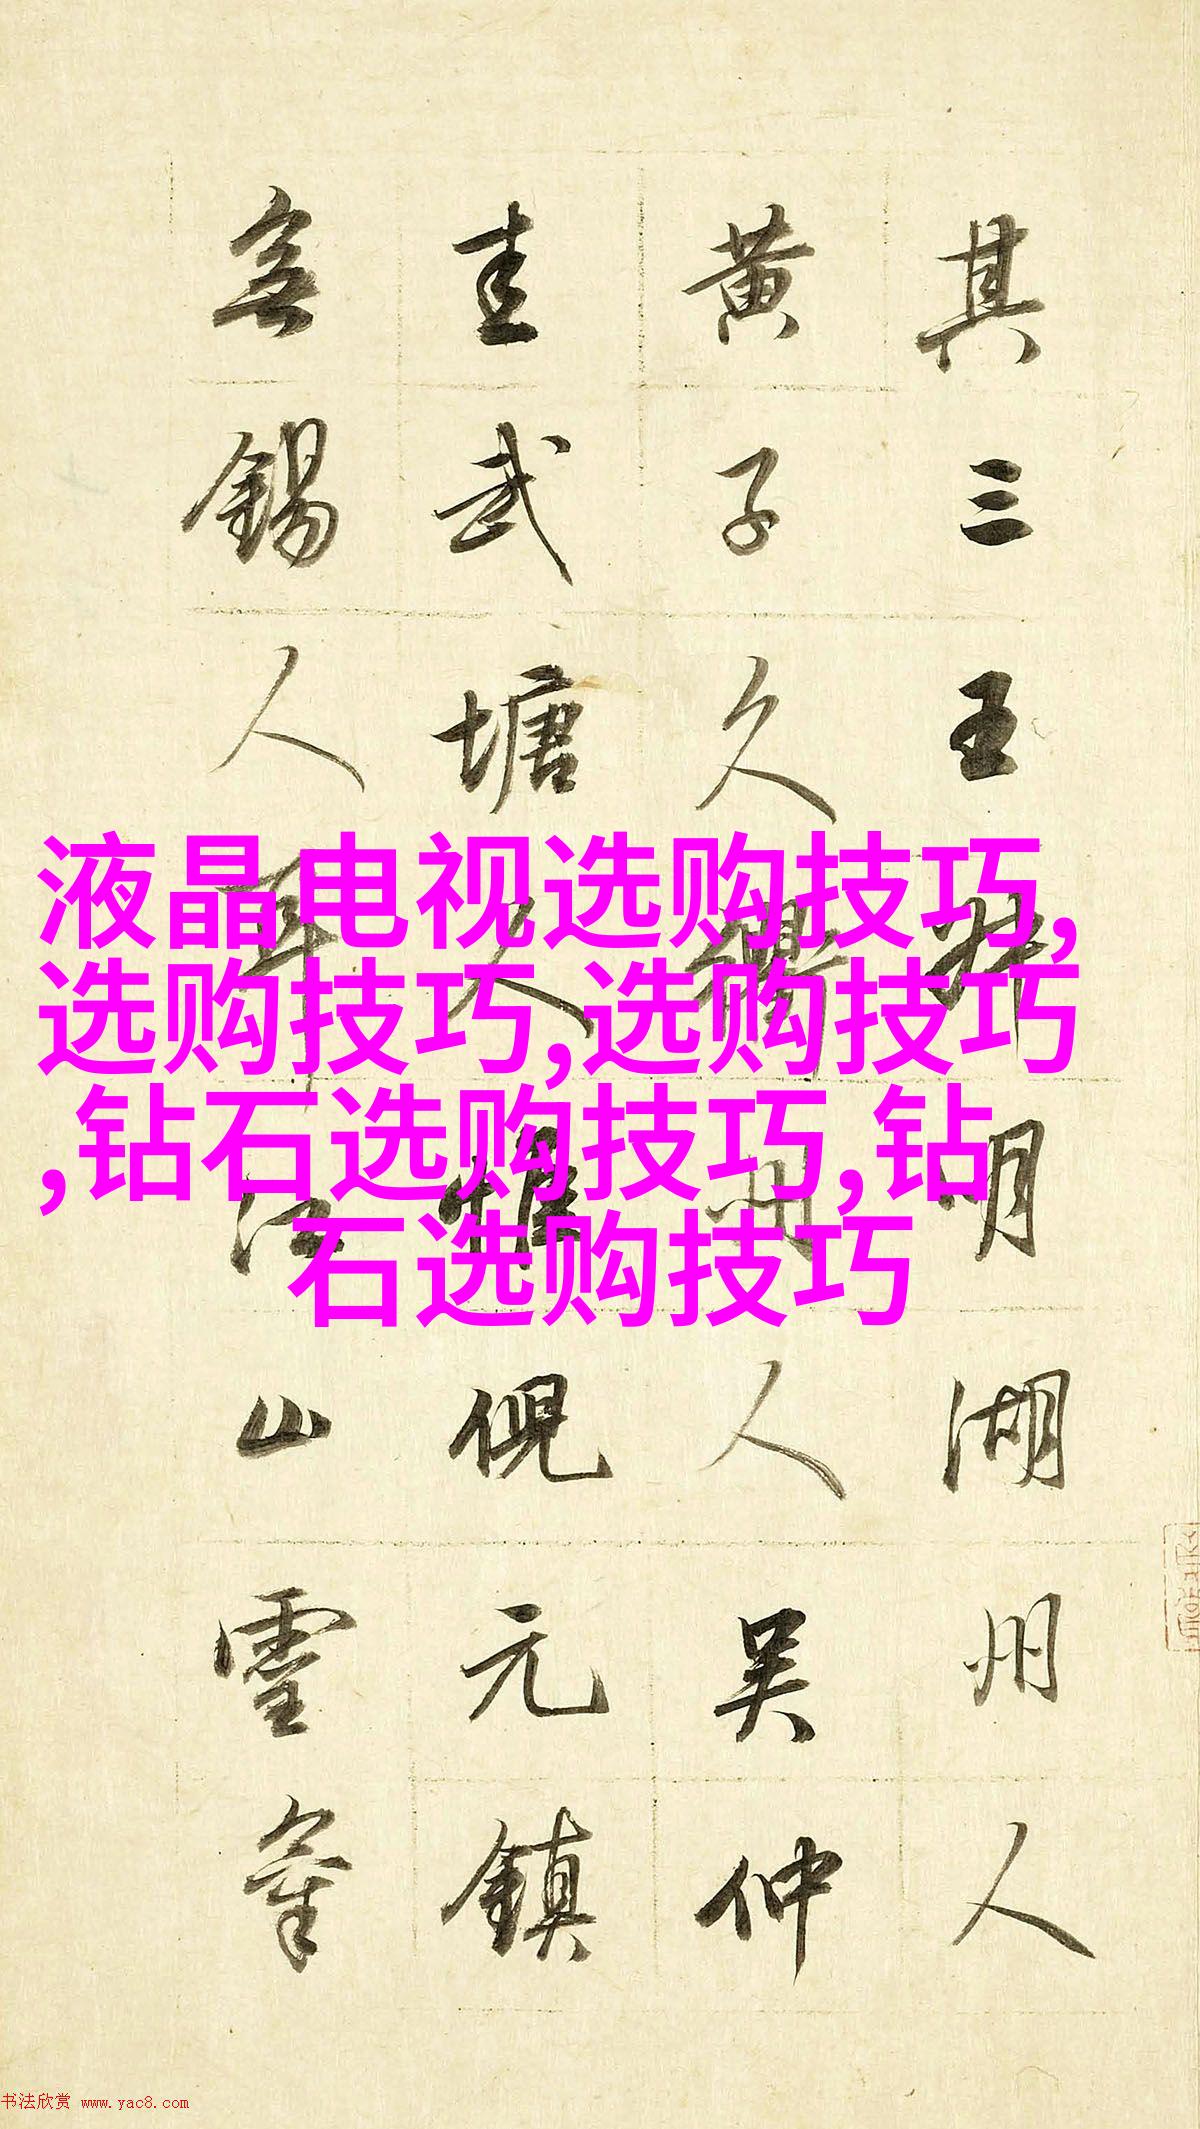 其三王叔明湖州人
黄子久衢州人吴仲
圭武塘人惟倪元鎮
無錫人耳江山靈氣
液晶电视选购技巧,
选购技巧,选购技巧
,钻石选购技巧,钻
石选购技巧
书法欣赏 www.yac8.com